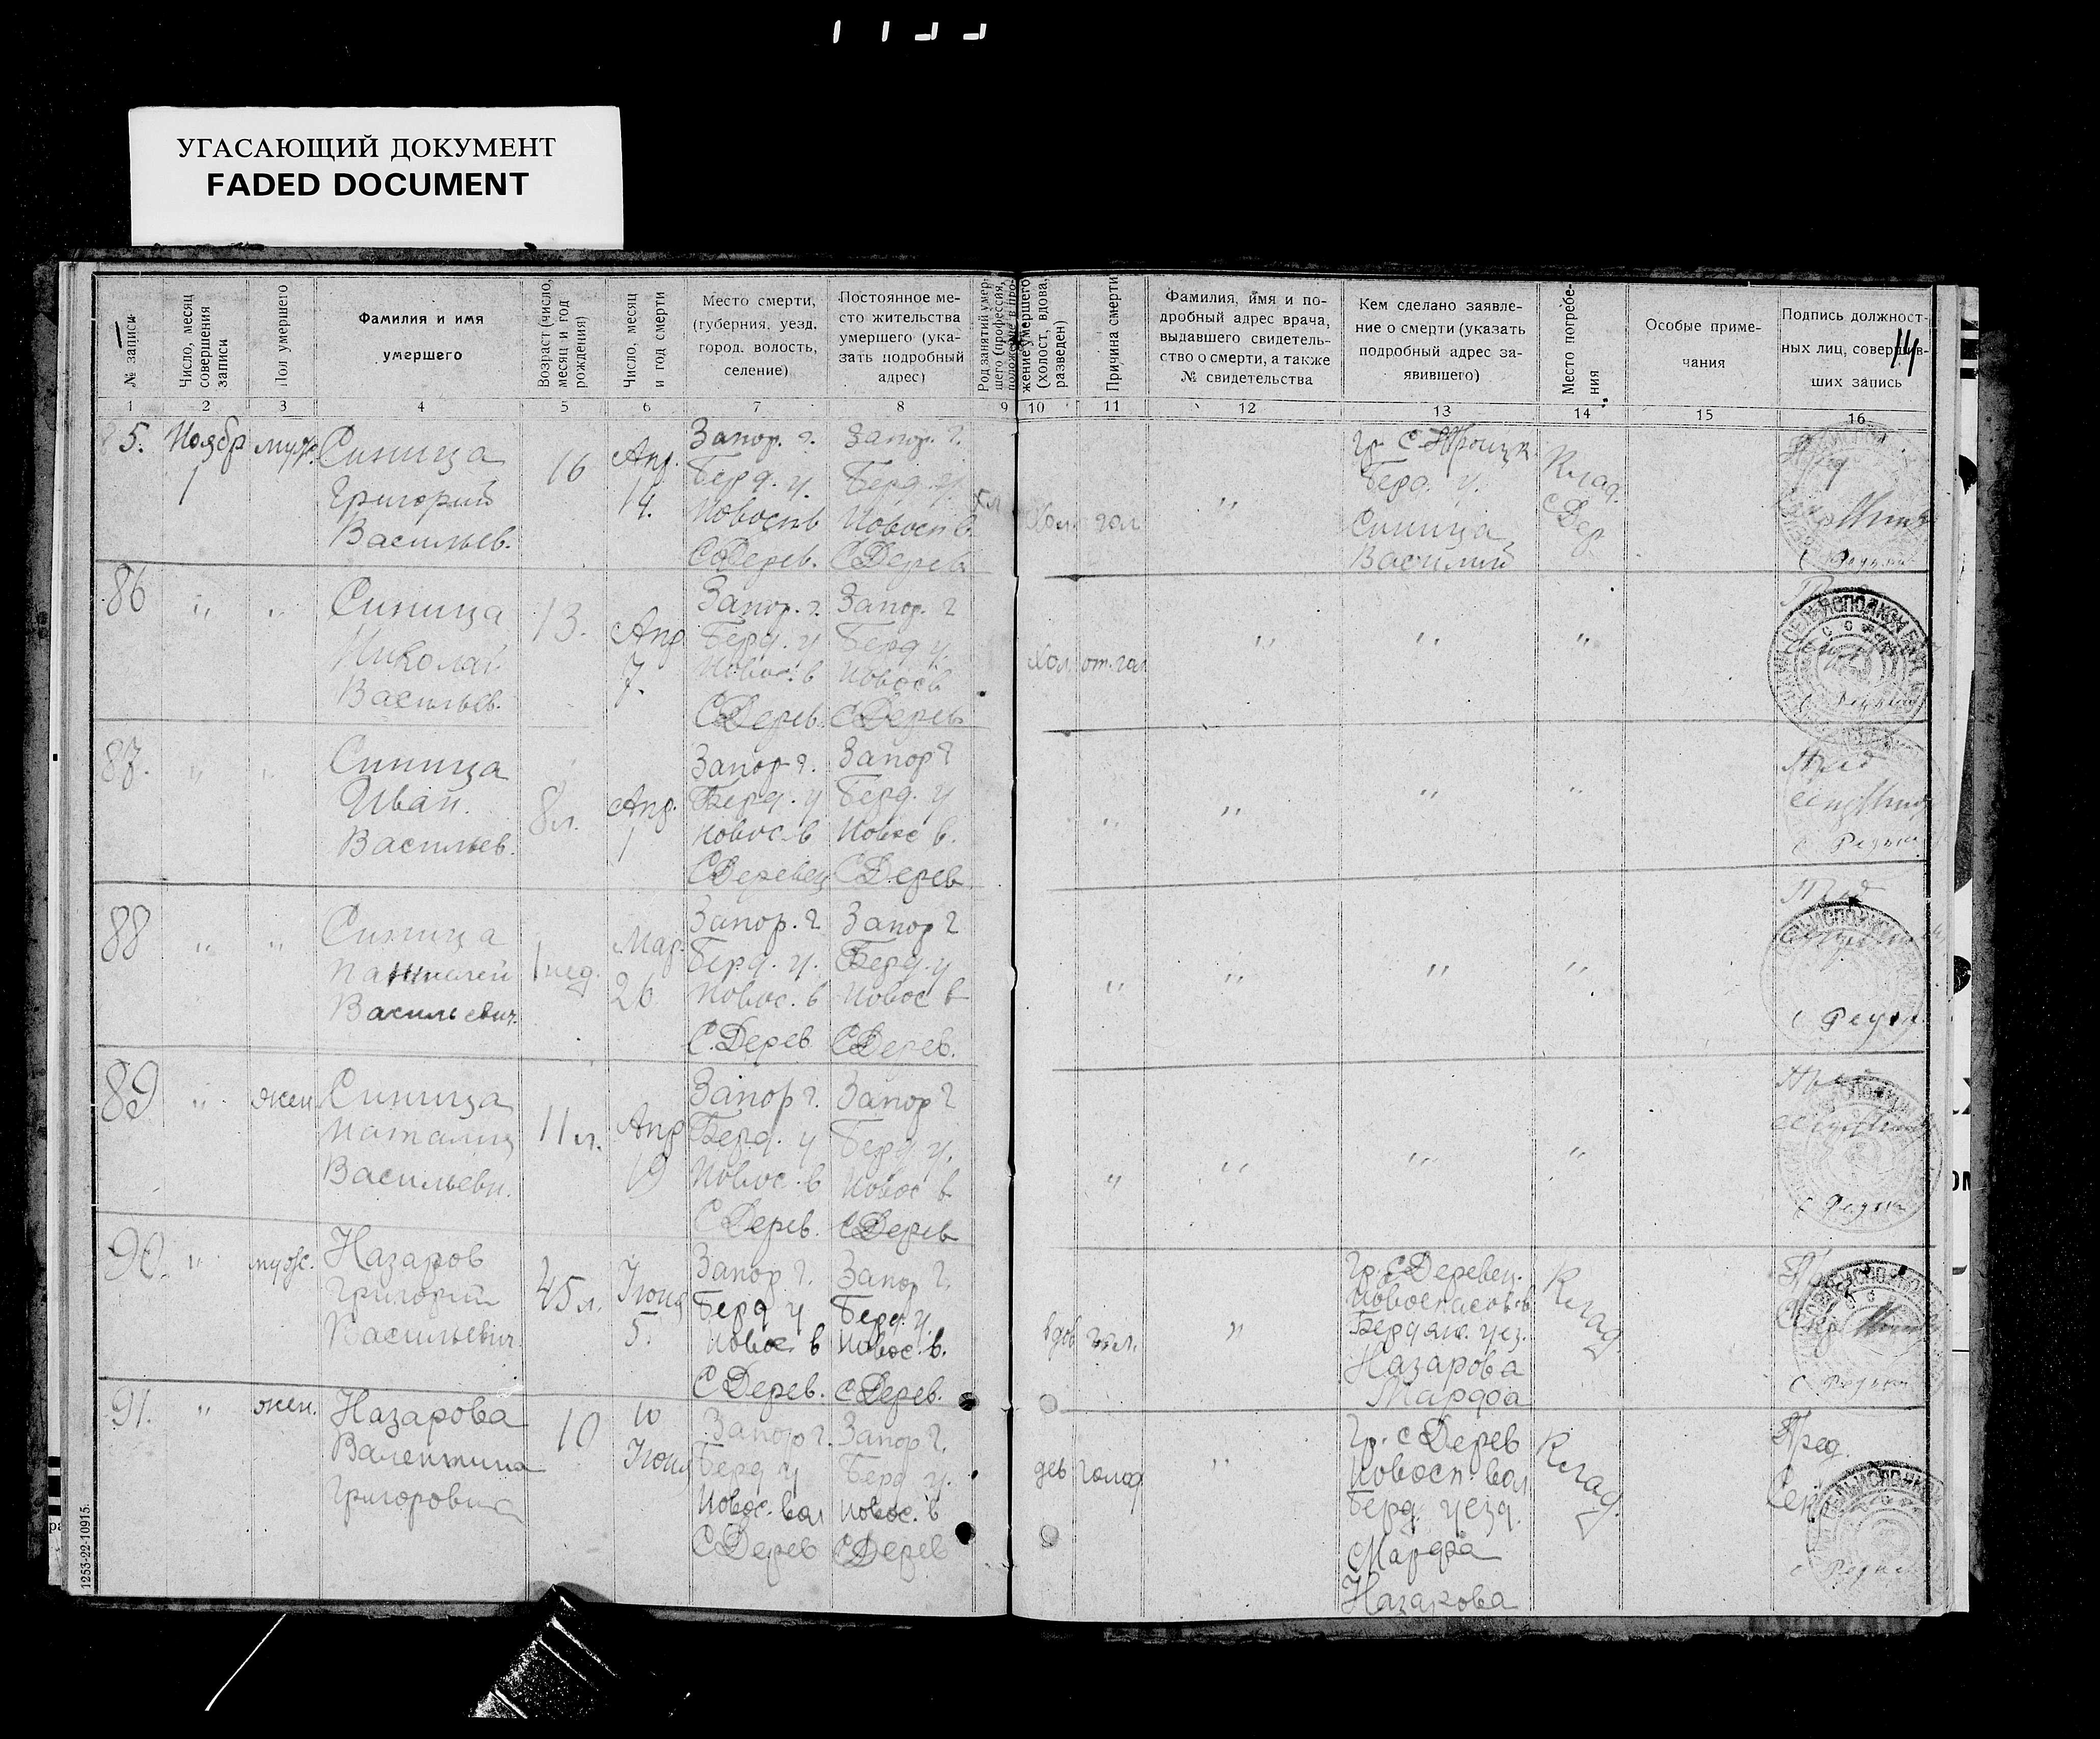 УГАСАЮЩИЙ ДОКУМЕНТ
FADED DOCUMENT
№ записи
Число, месяц совершения записи
Пол умершего
Фамилия и имя
умершего
Возраст (число, месяц и год рождения)
Число, месяц и год смерти
Место смерти,
(губерния, уезд,
город, волость,
селение)
Постоянное ме-
сто жительства
умершего (ука-
зать подробный
адрес)
Род занятий умер-
шего (профессия,
жение умершего
(холост, вдова,
разведен)
Причина смерти
Фамилия, имя и по-
дробный адрес врача,
выдавшего свидетель-
ство о смерти, а также
№ свидетельства
Кем сделано заявле-
ние о смерти (указать
подробный адрес за-
явившего)
Место погребе-
ния
Особые приме-
чания
Подпись должност-
ных лиц, совершив-
ших запись
14
1 2 3 4 5 6 7 8 9 10 11 12 13 14 15 16
5. Ноябр 1 муж.
Синица
Григорий
Васильев.
16
Апр.
14.
Запор. г.
Берд. у.
Новоспв
С Дерев.
Запор. г.
Берд. у.
Новосп в.
С Дерев
Хол. гол
"
Гр. С. Троицк.
Берд. у.
Синица
Василий
Клад.
с Дер
86 " "
Синица
Николай
Васильев.
13.
Апр
7.
Запор. г.
Берд. у
Новос. в
С Дерев.
Запор. г
Берд у.
Новосв
С Дерев
Хол. от. гол
" " "
87. " "
Синица
Иван.
Васильев.
8 л.
Апр.
1
Запор г.
Берд. у
Новос. в
С Деревец
Запор г
Берд. у
Новос в.
С Дерев
" " " "
88 " "
Синица
Васильевич.
1 нед.
Мар.
26
Запор. г.
Берд. у.
Новос. в
С. Дерев
Запор г
Берд. у
Новос в
С Дерев.
" " " "
89 " жен.
Синица
Наталия
Васильевн.
11 л.
Апр
19
Запор г.
Берд. у
Новос. в
С Дерев.
Запор г
Берд у.
Новос в
С Дерев
" " " "
90. " муж.
Назаров
Григорий
Васильевич
45 л.
Июня
5.
Запор г.
Берд у
Новос. в
С Дерев.
Запор г.
Берд. у.
Новос. в.
С Дерев.
вдов гол.
"
Гр. С Деревец.
Новоспасов. в.
Бердян. уез.
Назарова
Марфа
Клад
91. " жен.
Назарова
Валентина
Григоровна
10
10
Июня
Запор г.
Берд у
Новос. вол
С Дерев
Запор г.
Берд у.
Новос. в
С Дерев
дев голод
"
Гр. с Дерев
Новосп. вол
Берд. уезд.
Марфа
Назарова
Клад.
Пред.
Сек
1253-22-10915.